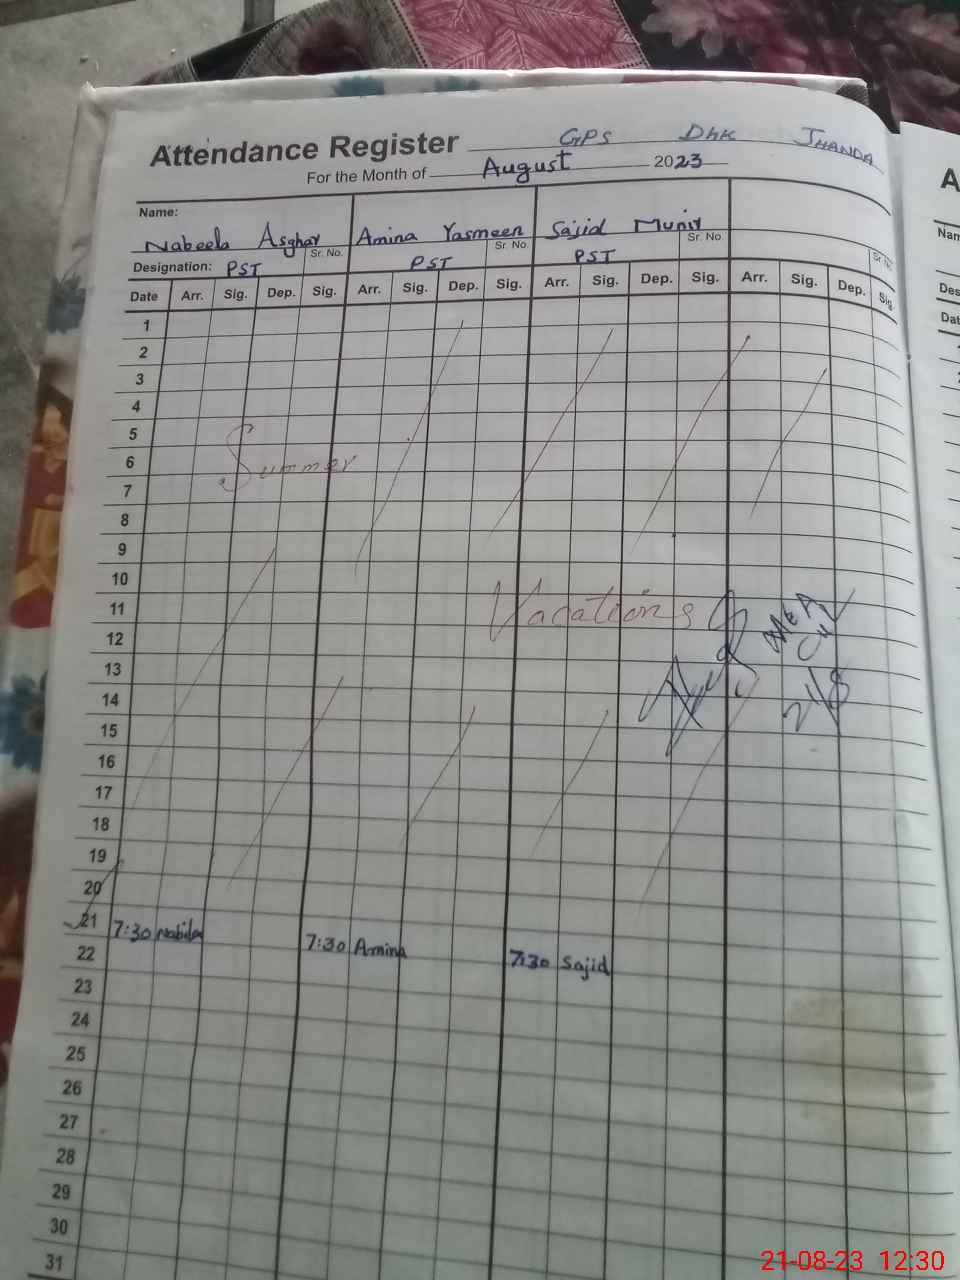 Attendance Register GPS Dhk JHANDA
For the Month of August 2023
Name:
Nabeela Asghar Amina Yasmeen Sajid Munir
Sr. No. Sr. No. Sr. No. Sr. No.
Designation: PST PST PST
Date Arr. Sig. Dep. Sig. Arr. Sig. Dep. Sig. Arr. Sig. Dep. Sig. Arr. Sig. Dep. Sig.
1
2
3
4
5
6 Summer
7
8
9
10
11 Vacations
12 MEA
13
14 21/8
15
16
17
18
19
20
21 7:30 Nabila 7:30 Amina 7:30 Sajid
22
23
24
25
26
27
28
29
30
31
A
Nam
Des
Dat
21-08-23 12:30